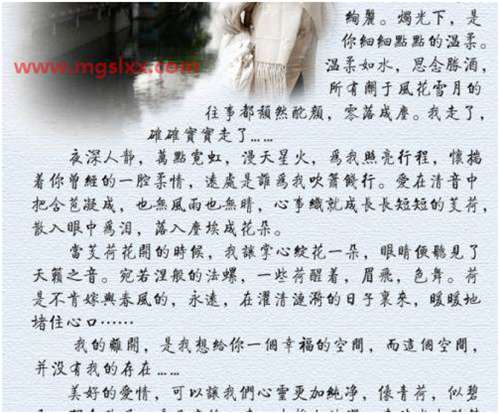 絢麗。燭光下，是
你細細點點的溫柔。
溫柔如水，思念勝酒，
www.mgslxx.com
所有關于風花雪月的
往事都頹然酡顏，零落成塵。我走了，
確確實實走了……
夜深人靜，萬點霓虹，漫天星火，為我照亮行程，懷揣
着你曾經的一腔柔情，遠處是誰為我吹簫餞行。愛在清音中
把含苞凝成，也無風雨也無晴，心事織就成長長短短的芰荷，
散入眼中為泪，落入塵埃成花朵。
當芰荷花開的時候，我讓掌心綻花一朵，眼睛便聽見了
天籟之音。宛若涅般的法螺，一些荷醒着，眉飛，色舞。荷
是不肯嫁與春風的，永遠，在濯清漣漪的日子裏來，暖暖地
堵住心口……
我的離開，是我想給你一個幸福的空間，而這個空間，
并没有我的存在……
美好的愛情，可以讓我們心靈更加純净，像青荷，似碧